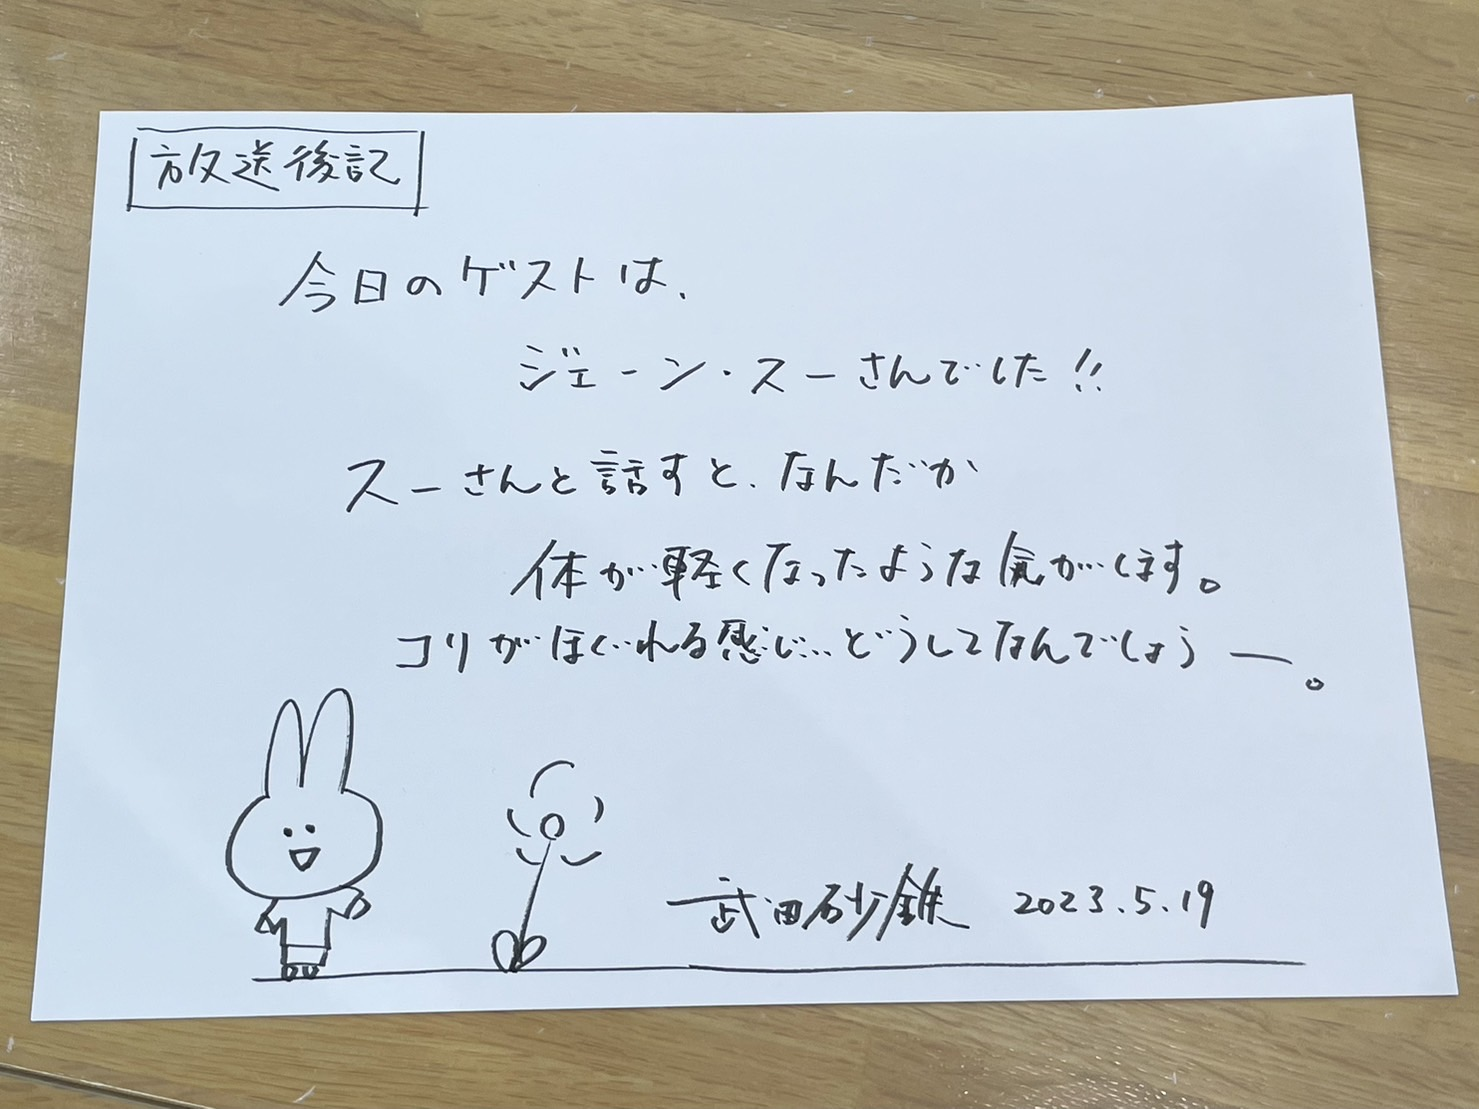 放送後記
今日のゲストは、
ジェーン・スーさんでした!!
スーさんと話すと、なんだか
体が軽くなったような気がします。
コリがほぐれる感じ…どうしてなんでしょうー。
武田砂鉄 2023.5.19